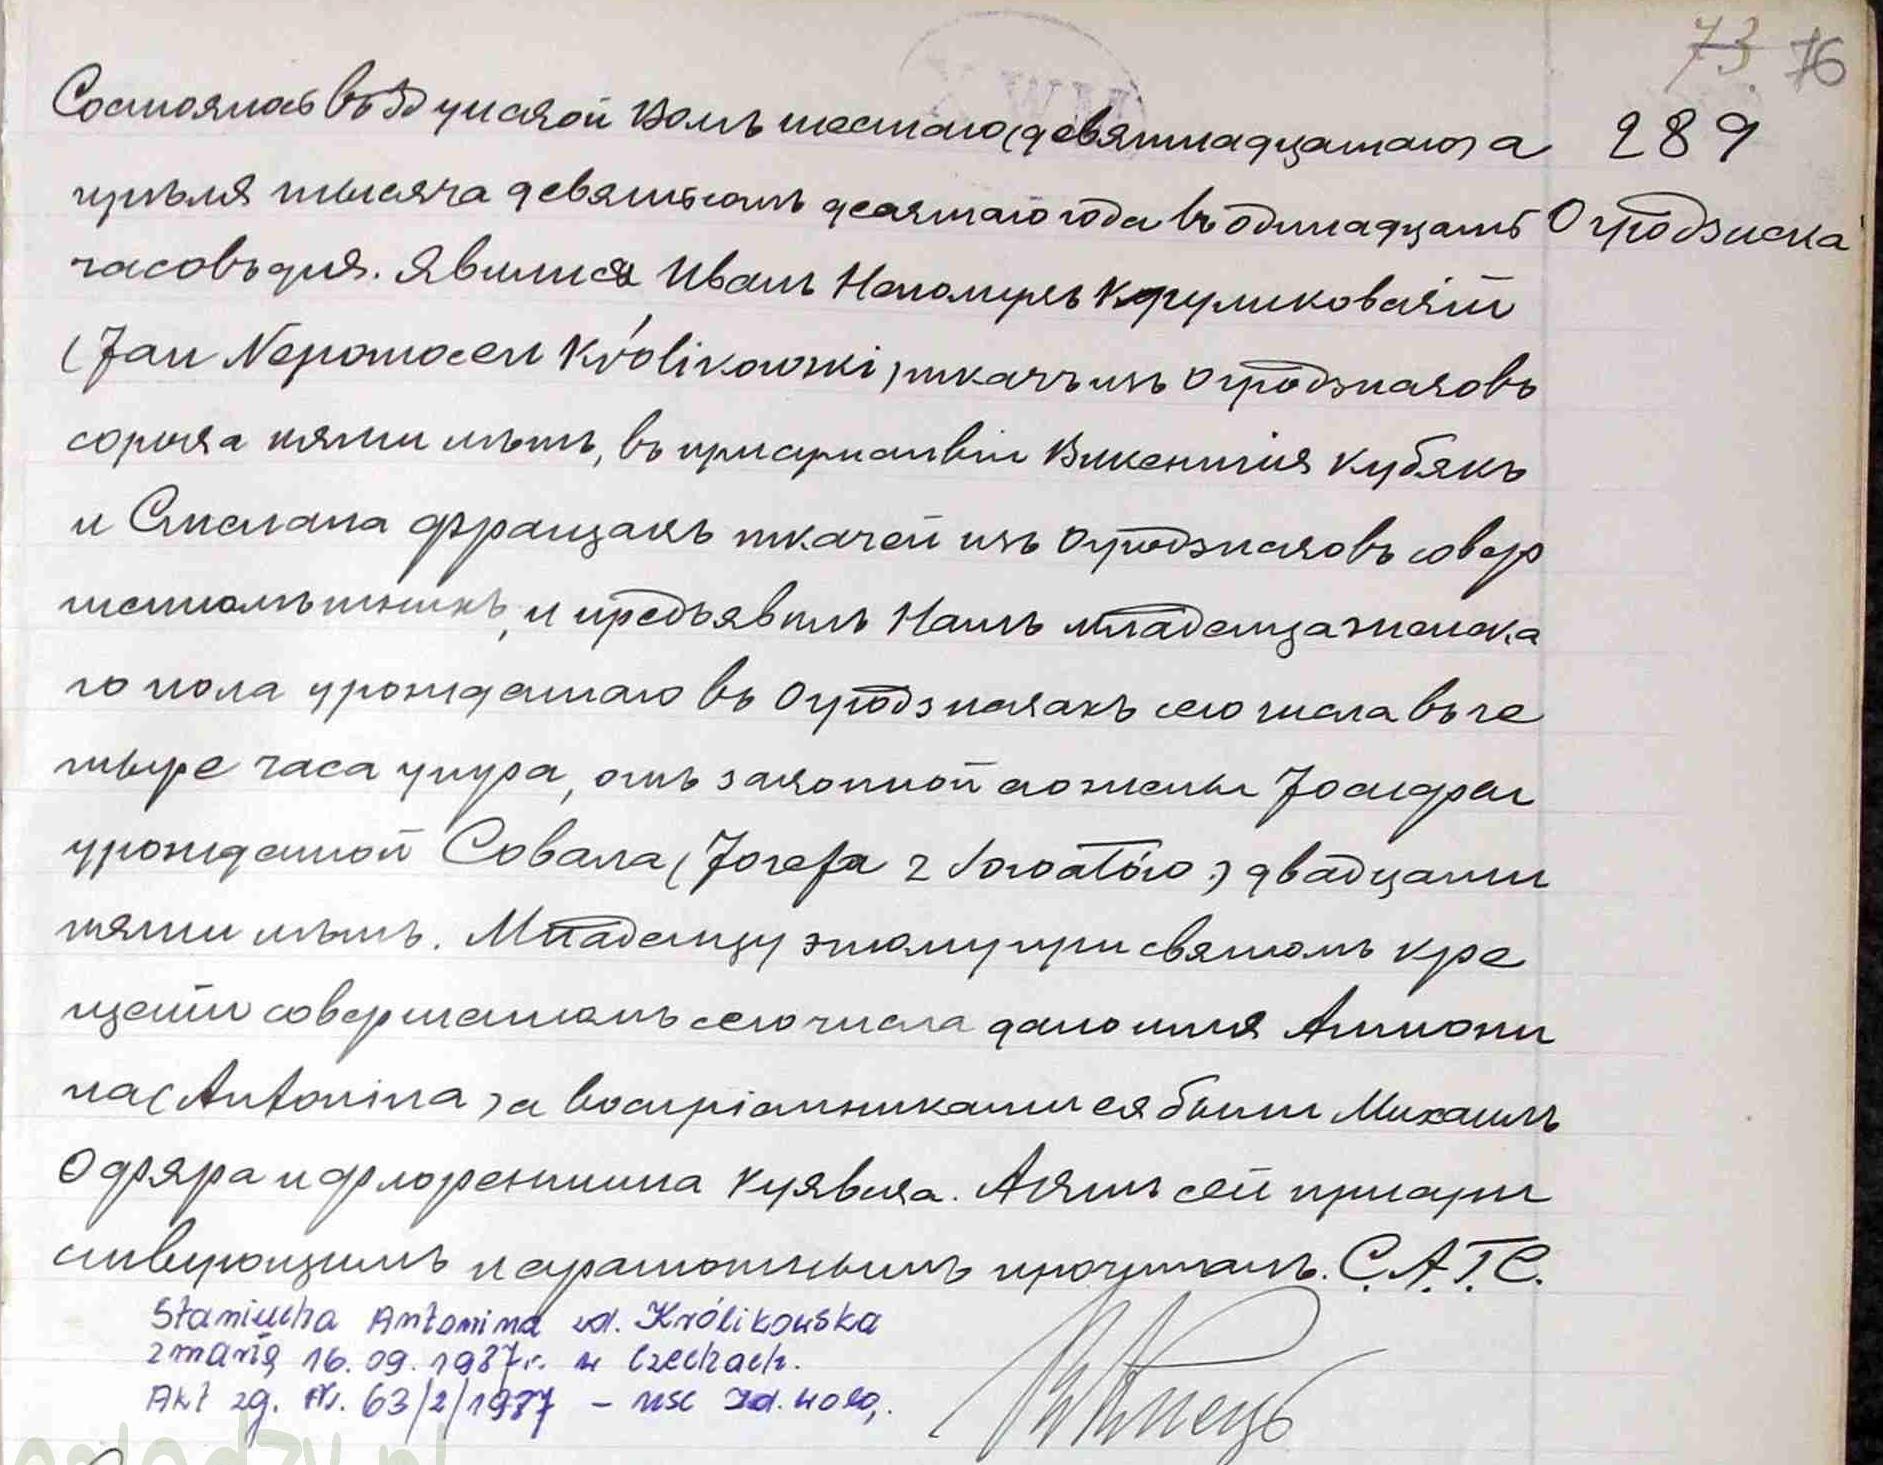 73 76
Состоялось въ Здунской Волѣ шестаго (девятнадцатаго) а
289
прѣля тысяча девятьсотъ десятаго года въ одинадцать
Огродзиска
часовъ дня. Явился Иванъ Непомуценъ Круликовскій
(Jan Nepomocen Królikowski) ткачъ изъ Огродзисковъ
сорока пяти лѣтъ, въ присутствіи Викентія Кубякъ
и Стелана Францакъ ткачей изъ Огродзисковъ совер
шеннолѣтнихъ, и предъявилъ Намъ младенца женска
го пола урожденнаго въ Огродзискахъ сего числа въ че
тыре часа утра, отъ законной его жены Іозефы
урожденной Совала (Józefa z Sowałów) двадцати
пяти лѣтъ. Младенцу этому при святомъ кре
щеніи совершенномъ сего числа дано имя Антони
на (Antonina) а воспріемниками ея были Михаилъ
и Флорентина Куявска. Актъ сей присут
ствующимъ неграмотнымъ прочитанъ. С.А.Г.С.
Staniucha Antonina zd. Królikowska
zmarła 16.09.1987r. w Czechach.
Akt zg. Nr. 63/2/1987 – USC Zd. Wola,.